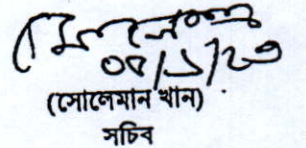 ০৫/১/২৩
(সোলেমান খান)
সচিব